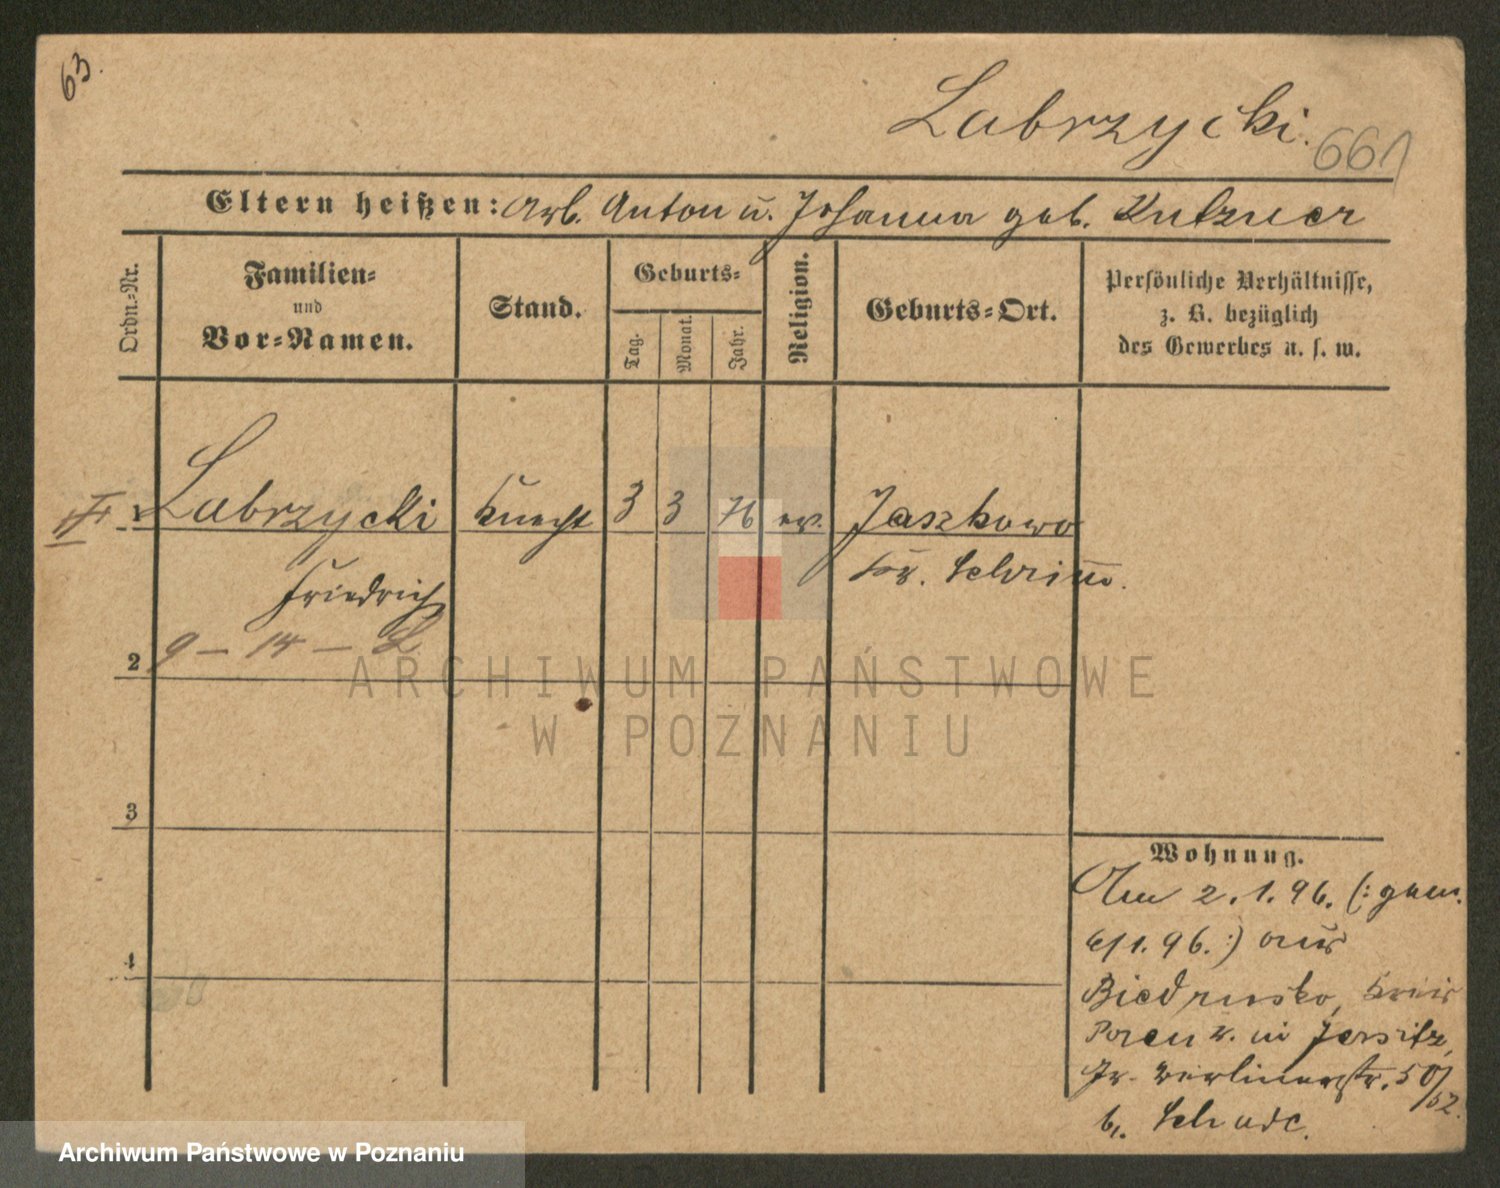 63.
Labrzycki.
661
Eltern heißen: Arb. Anton u. Johanna geb. Kutzner
Ordn.-Nr.
Familien-
und
Vor-Namen.
Stand.
Geburts-
Tag.
Monat.
Jahr.
Religion.
Geburts-Ort.
Persönliche Verhältnisse,
z. B. bezüglich
des Gewerbes u. s. w.
1 Labrzycki Knecht 3 3 76 ev. Jaszkowo
Friedrich Kr. Schrimm.
2 9 - 14 - L
3
4
Wohnung.
Am 2.1.96. (: gem.
6/1.96. :) aus
Biedrusko, Kreis
Posen z. in Jersitz,
Gr. Berlinerstr. 50/
52.
b. Schade.
ARCHIWUM PAŃSTWOWE
W POZNANIU
Archiwum Państwowe w Poznaniu